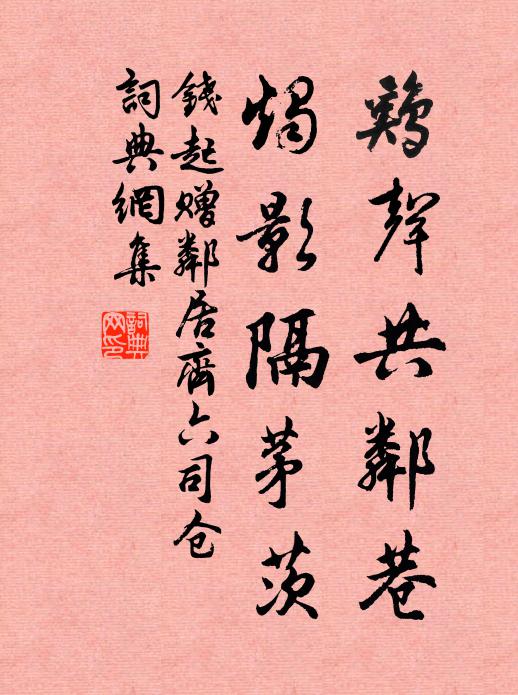 鷄聲共鄰巷
燭影隔茅茨
錢起赠鄰居齊六司仓
詞典網集
詞典網印